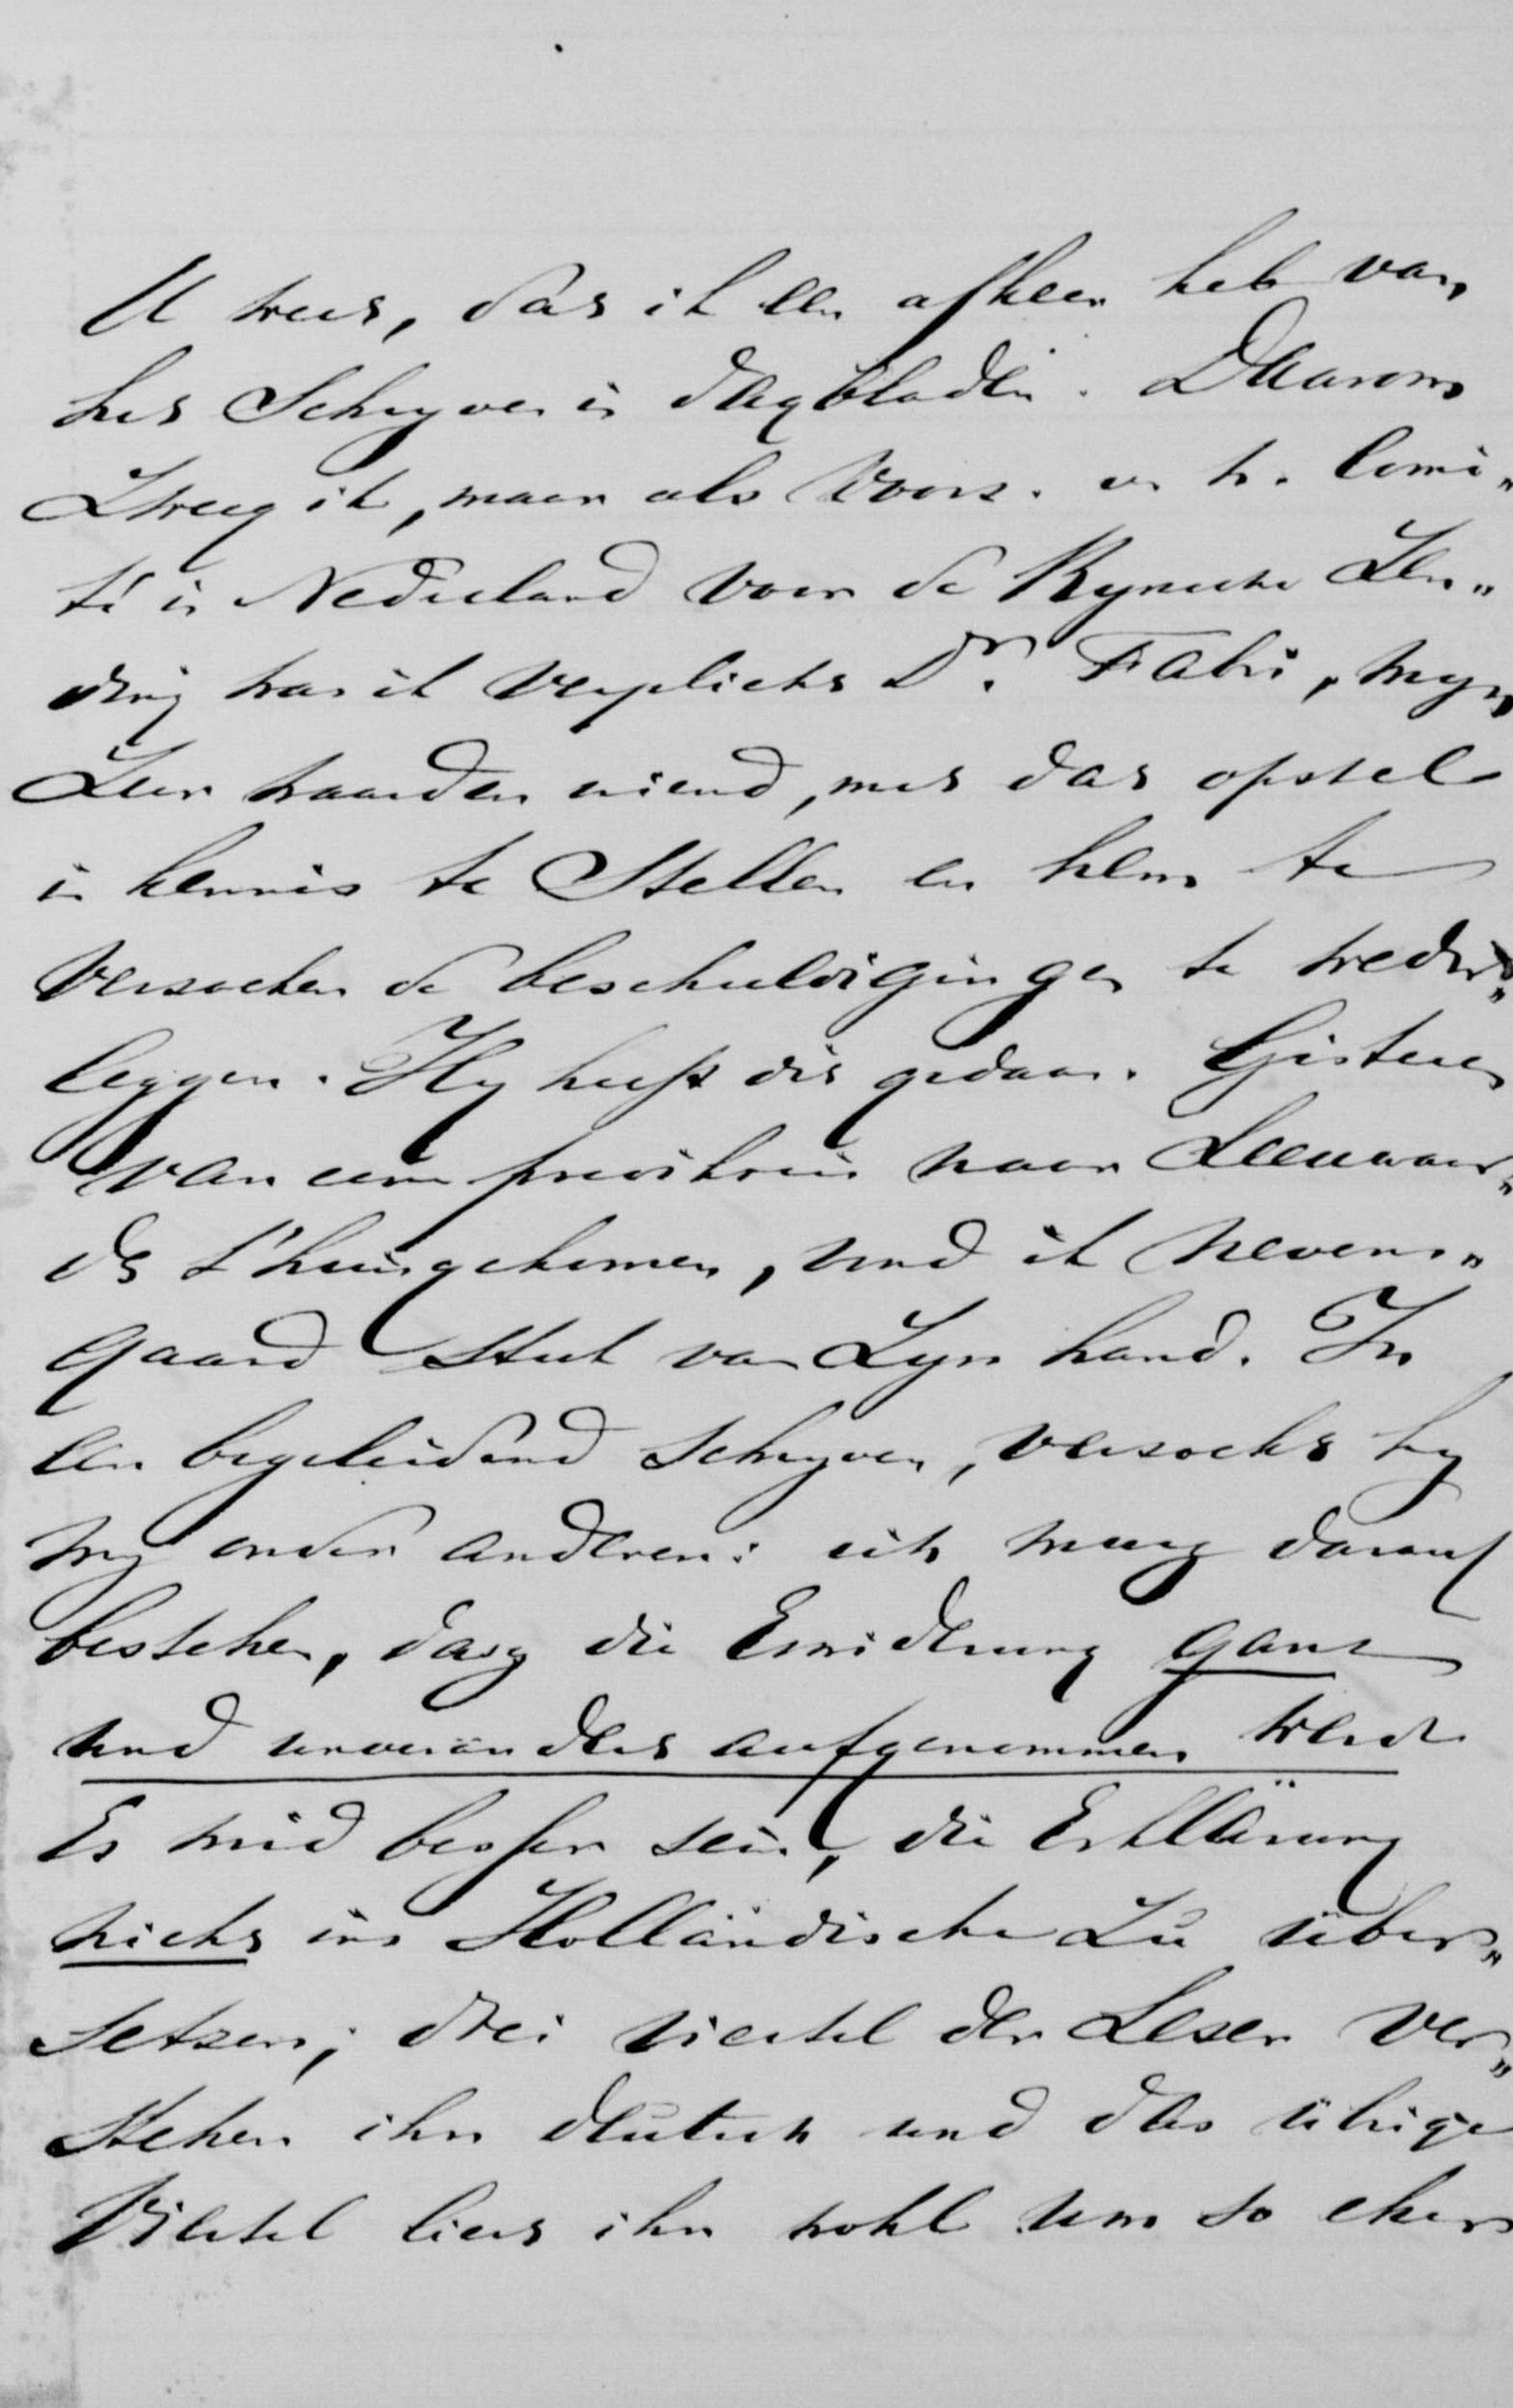 U weet, dat ik een afkeer heb van
het Schryven in dagbladen. Daarom
Zweeg ik, maar als Voorz. v. h. Comi„
té in Nederland voor de Rynsche Zen„
ding was ik verplicht Dr. Fabri, myn
Zeer waarden vriend, met dat opstel
in kennis te Stellen en hem te
Verzoeken de beschuldigingen te weder„
leggen. Hy heeft dit gedaan. Gisteren
van eene preekreis naar Leeuwar„
den t'huisgekomen, vond ik nevens„
gaand Stuk van Zyn hand. In
een begeleidend Schryven, verzocht hy
my onder anderen: ich muss darauf
bestehen, dass die Erwiderung ganz
und unverändert aufgenommen werde
Es wird besser sein, die Erklärung
nicht ins Holländische zu über„
setzen; drei Viertel der Leser ver„
stehen ihn deutsch und das übrige
Viertel liest ihn wohl um so eher